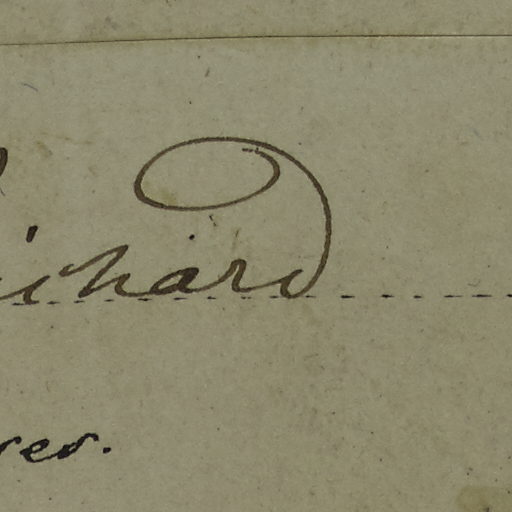 ichard
rer.